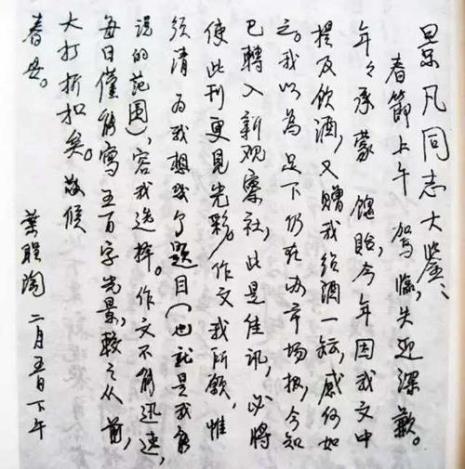 景凡同志大鉴：
春節上午 駕臨，失迎深歉。
年々承蒙 饋貽，今年因我文中
提及飲酒，又贈我紹酒一罈，感何如
之。我以為足下仍在办市场报，今知
已轉入新观察社，此是佳讯，必将
使此刊更見光彩。作文我所願，惟
须請 为我想幾个题目（也就是我肯
说的范围），容我选择。作文不能迅速，
每日僅能寫五百字光景，較之从前，
大打折扣矣。敬候
春安。
葉聖陶 二月五日下午